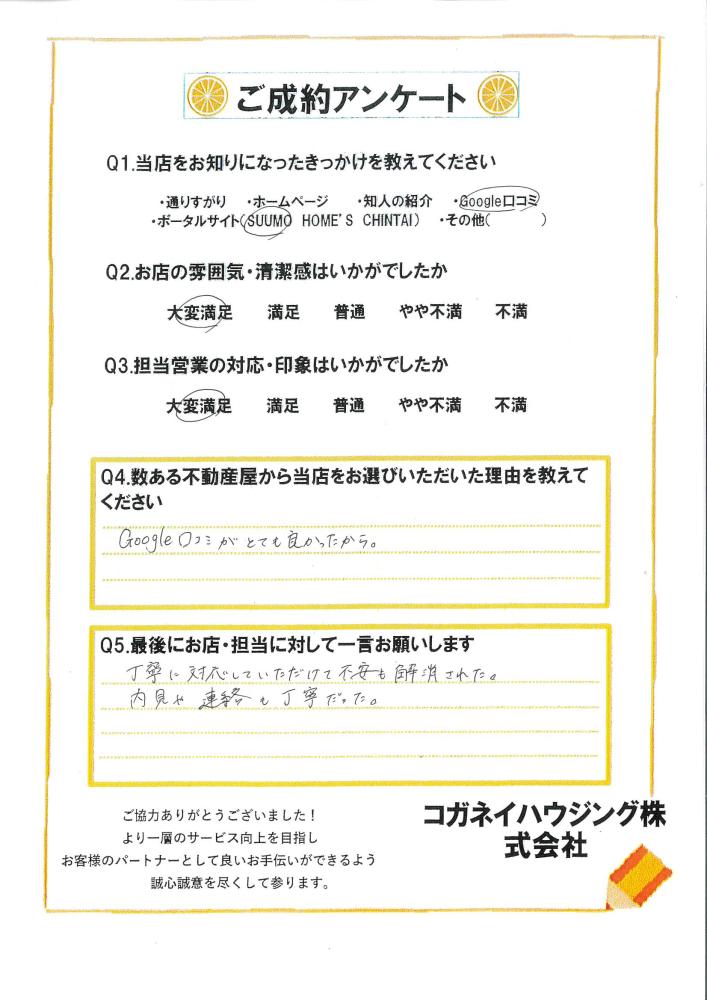 ご成約アンケート
Q1.当店をお知りになったきっかけを教えてください
・通りすがり ・ホームページ ・知人の紹介 ・Google口コミ
・ポータルサイト(SUUMO HOME'S CHINTAI) ・その他( )
Q2.お店の雰囲気・清潔感はいかがでしたか
大変満足 満足 普通 やや不満 不満
Q3.担当営業の対応・印象はいかがでしたか
大変満足 満足 普通 やや不満 不満
Q4.数ある不動産屋から当店をお選びいただいた理由を教えて
ください
Google口コミがとても良かったから。
Q5.最後にお店・担当に対して一言お願いします
丁寧に対応していただけて不安も解消された。
内見や連絡も丁寧だった。
ご協力ありがとうございました!
より一層のサービス向上を目指し
お客様のパートナーとして良いお手伝いができるよう
誠心誠意を尽くして参ります。
コガネイハウジング株
式会社